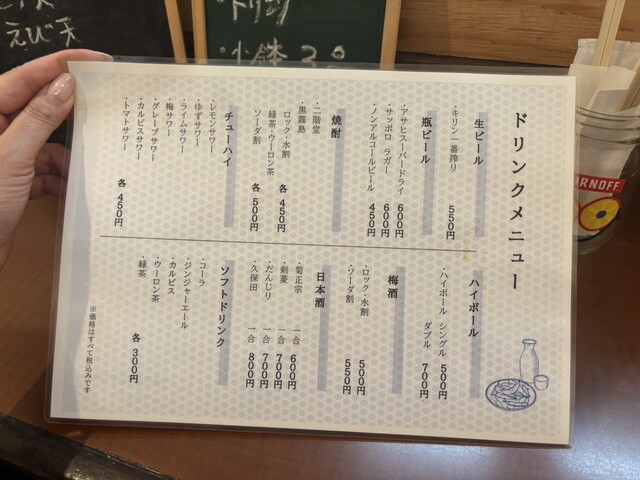 えび天
ドリンク
ドリンクメニュー
生ビール
・キリン一番搾り 550円
瓶ビール
・アサヒスーパードライ 600円
・サッポロ ラガー 600円
・ノンアルコールビール 450円
焼酎
・二階堂
・黒霧島
ロック・水割 各450円
緑茶・ウーロン茶
ソーダ割 各500円
チューハイ
・レモンサワー
・ゆずサワー
・ライムサワー
・梅サワー
・グレープサワー
・カルピスサワー
・トマトサワー 各450円
ハイボール
・ハイボール シングル 500円
ダブル 700円
梅酒
・ロック・水割 500円
・ソーダ割 550円
日本酒
・菊正宗 一合 600円
・剣菱 一合 700円
・だんじり 一合 700円
・久保田 一合 800円
ソフトドリンク
・コーラ
・ジンジャーエール
・カルピス
・ウーロン茶
・緑茶 各300円
※価格はすべて税込みです
RNOFF